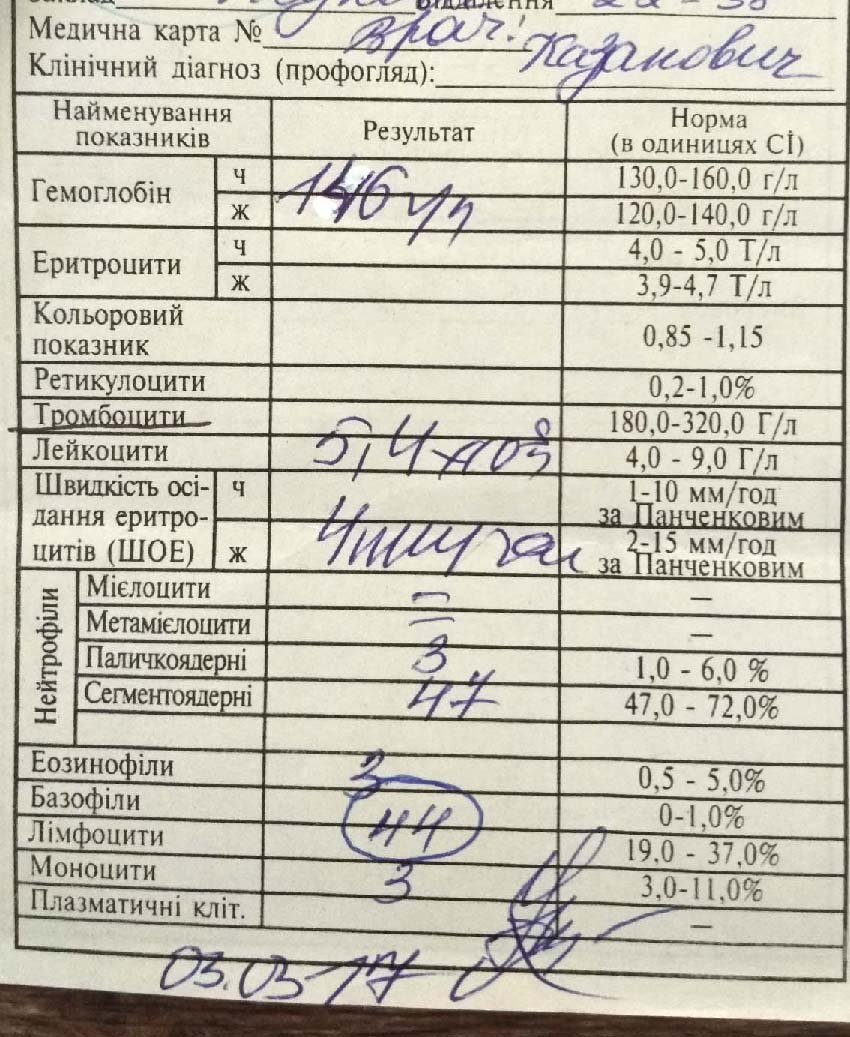 Відділення 22-38
Медична карта № врач:
Клінічний діагноз (профогляд): Казанович
Найменування показників Результат Норма (в одиницях СІ)
Гемоглобін ч 146 г/л 130,0-160,0 г/л
ж 120,0-140,0 г/л
Еритроцити ч 4,0 - 5,0 Т/л
ж 3,9-4,7 Т/л
Кольоровий показник 0,85 -1,15
Ретикулоцити 0,2-1,0%
Тромбоцити 180,0-320,0 Г/л
Лейкоцити 5,4 4,0 - 9,0 Г/л
Швидкість осі- ч 1-10 мм/год
дання еритро- за Панченковим
цитів (ШОЕ) ж 4 мм/год 2-15 мм/год
за Панченковим
Нейтрофіли
Мієлоцити – –
Метамієлоцити – –
Паличкоядерні 3 1,0 - 6,0 %
Сегментоядерні 47 47,0 - 72,0%
Еозинофіли 3 0,5 - 5,0%
Базофіли 0-1,0%
Лімфоцити 44 19,0 - 37,0%
Моноцити 3 3,0-11,0%
Плазматичні кліт. –
03.03-17